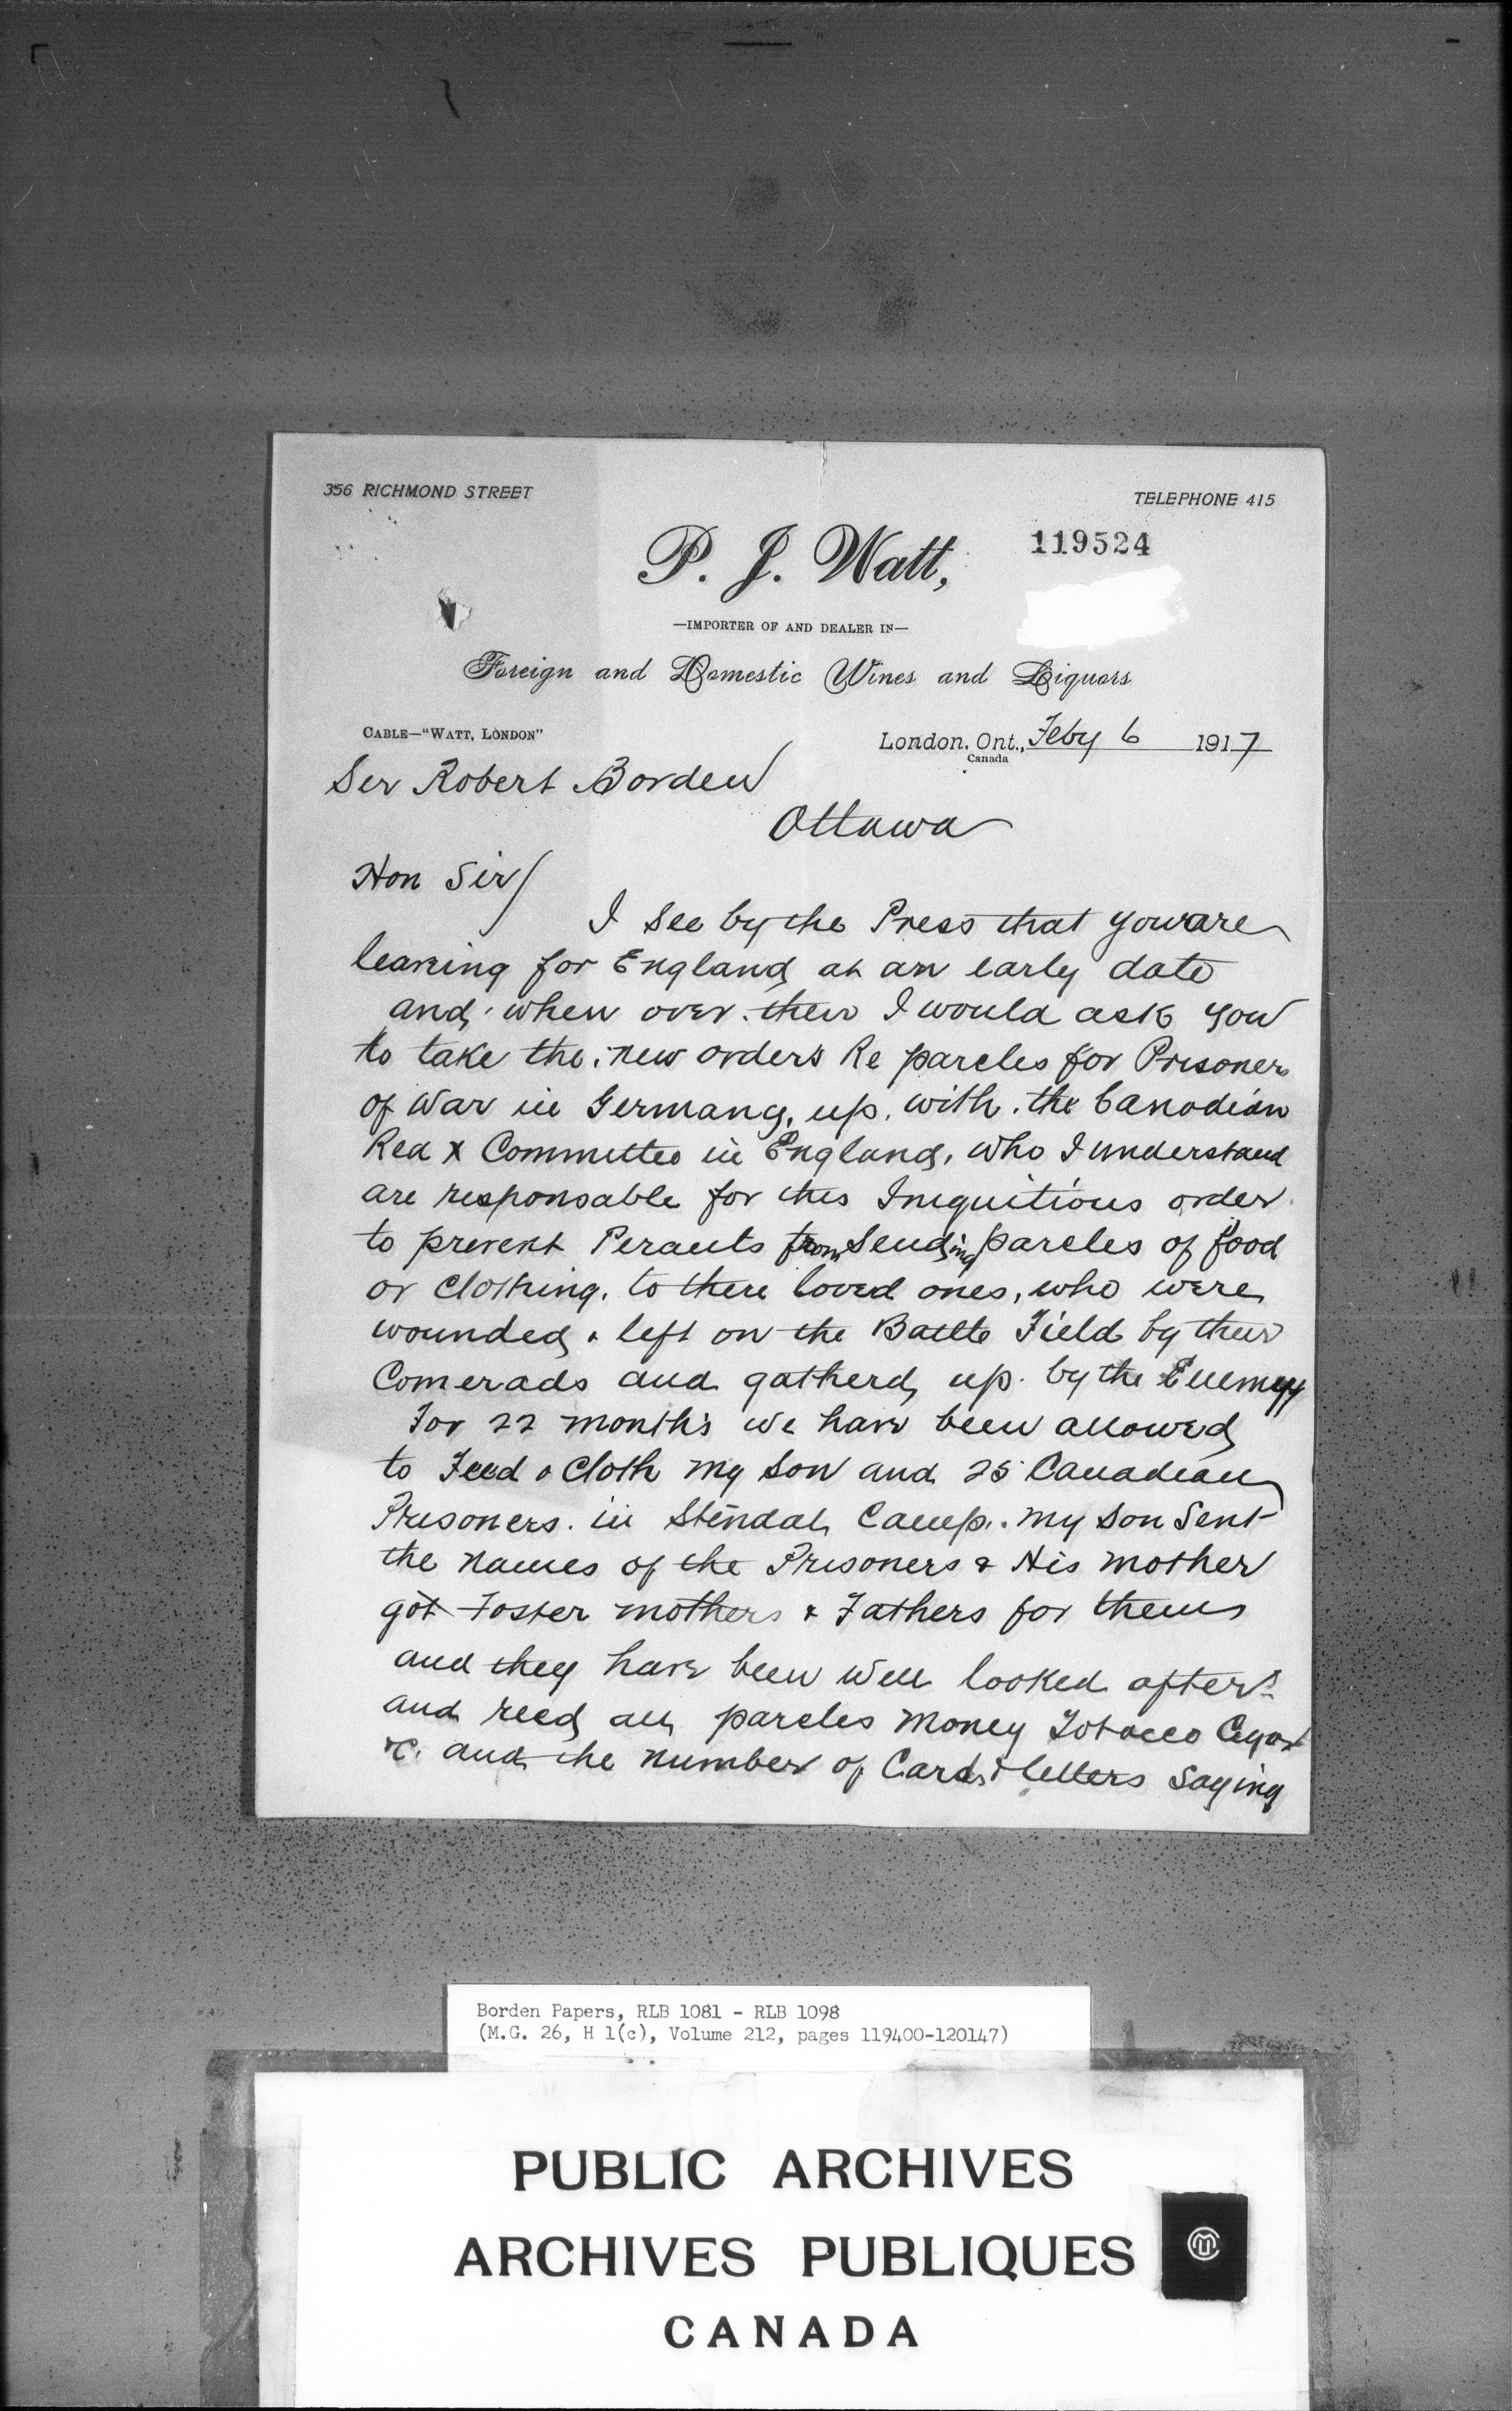 356 RICHMOND STREET
TELEPHONE 415
119524
P. J. Watt,
—IMPORTER OF AND DEALER IN—
Foreign and Domestic Wines and Liquors
CABLE—"WATT, LONDON"
London, Ont., Feby 6 1917
Canada
Ser Robert Borden
Ottawa
Hon Sir/
I see by the Press that you are
leaving for England at an early date
and when over then I would ask you
to take the new orders Re parcles for Prisoners
of War in Germany, up with the Canadian
Red X Committee in England, who I understand
are responsable for this Iniquitious order
to prevent Peraents from Sending parcles of food
or clothing, to there loved ones, who were
wounded & left on the Battle Field by their
Comerads and gatherd up by the Enemy
For 22 months we have been allowed
to Feed & Cloth my Son and 25 Canadian
Prisoners in Stendal Camp. my Son Sent
the names of the Prisoners & His mother
got Foster mothers & Fathers for them
and they have been well looked after
and recd all parcles money Tobacco Cigars
&c. and the number of Cards & letters Saying
Borden Papers, RLB 1081 - RLB 1098
(M.G. 26, H 1(c), Volume 212, pages 119400-120147)
PUBLIC ARCHIVES
ARCHIVES PUBLIQUES
CANADA